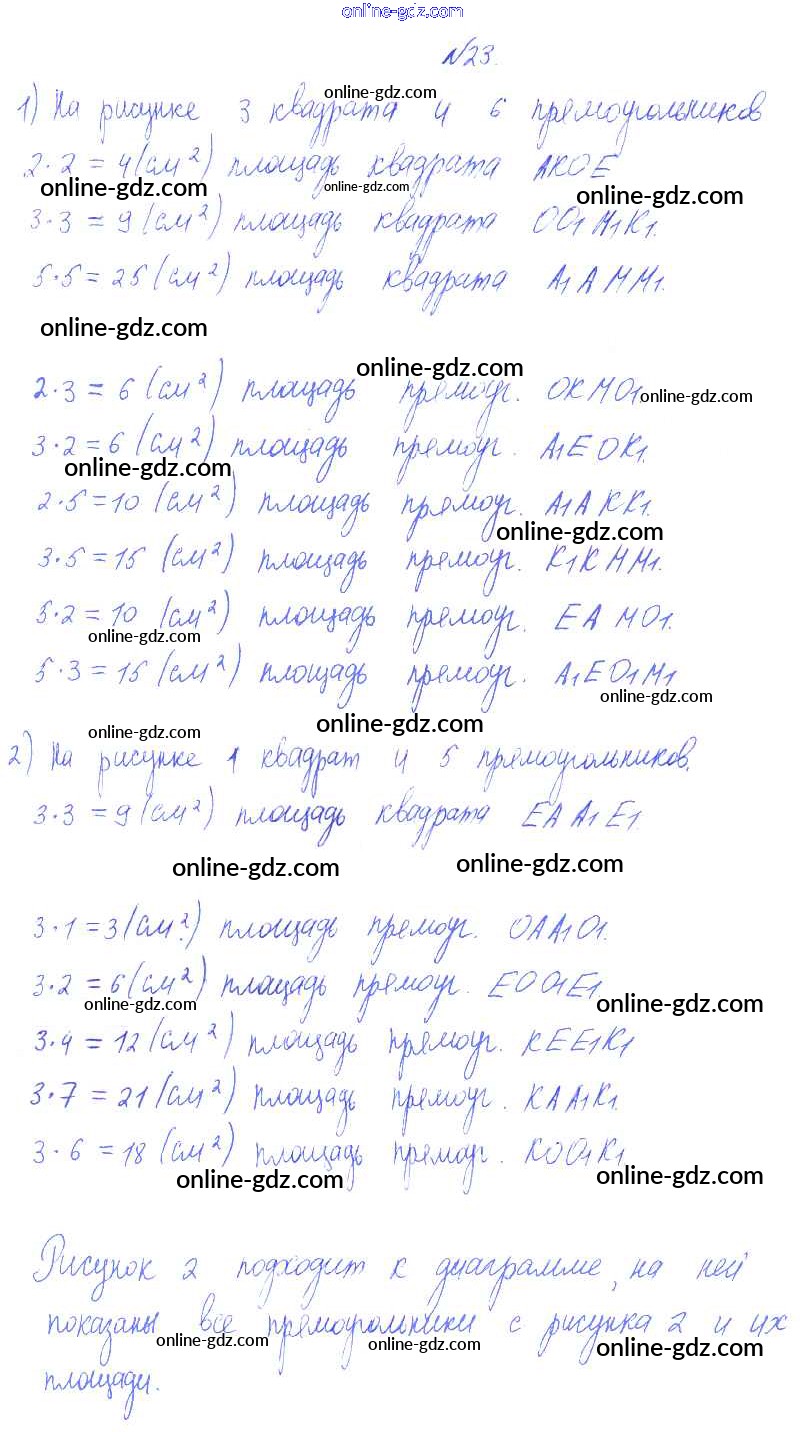 online-gdz.com
N23.
online-gdz.com
1) На рисунке 3 квадрата и 6 прямоугольников
2·2 = 4 (см²) площадь квадрата AKOE
online-gdz.com online-gdz.com online-gdz.com
3·3 = 9 (см²) площадь квадрата OO1M1K1.
5·5 = 25 (см²) площадь квадрата A1AMM1.
online-gdz.com
online-gdz.com
2·3 = 6 (см²) площадь прямоуг. OKMO1
online-gdz.com
3·2 = 6 (см²) площадь прямоуг. A1EOK1.
online-gdz.com
2·5 = 10 (см²) площадь прямоуг. A1AKK1.
online-gdz.com
3·5 = 15 (см²) площадь прямоуг. K1KMM1.
5·2 = 10 (см²) площадь прямоуг. EAMO1.
online-gdz.com
5·3 = 15 (см²) площадь прямоуг. A1EO1M1
online-gdz.com
online-gdz.com online-gdz.com
2) На рисунке 1 квадрат и 5 прямоугольников.
3·3 = 9 (см²) площадь квадрата EAA1E1.
online-gdz.com online-gdz.com
3·1 = 3 (см²) площадь прямоуг. OAA1O1.
3·2 = 6 (см²) площадь прямоуг. EOO1E1
online-gdz.com online-gdz.com
3·4 = 12 (см²) площадь прямоуг. KEE1K1
3·7 = 21 (см²) площадь прямоуг. KAA1K1.
3·6 = 18 (см²) площадь прямоуг. KOO1K1
online-gdz.com online-gdz.com
Рисунок 2 подходит к диаграмме, на ней
показаны все прямоугольники с рисунка 2 и их
online-gdz.com online-gdz.com online-gdz.com
площади.